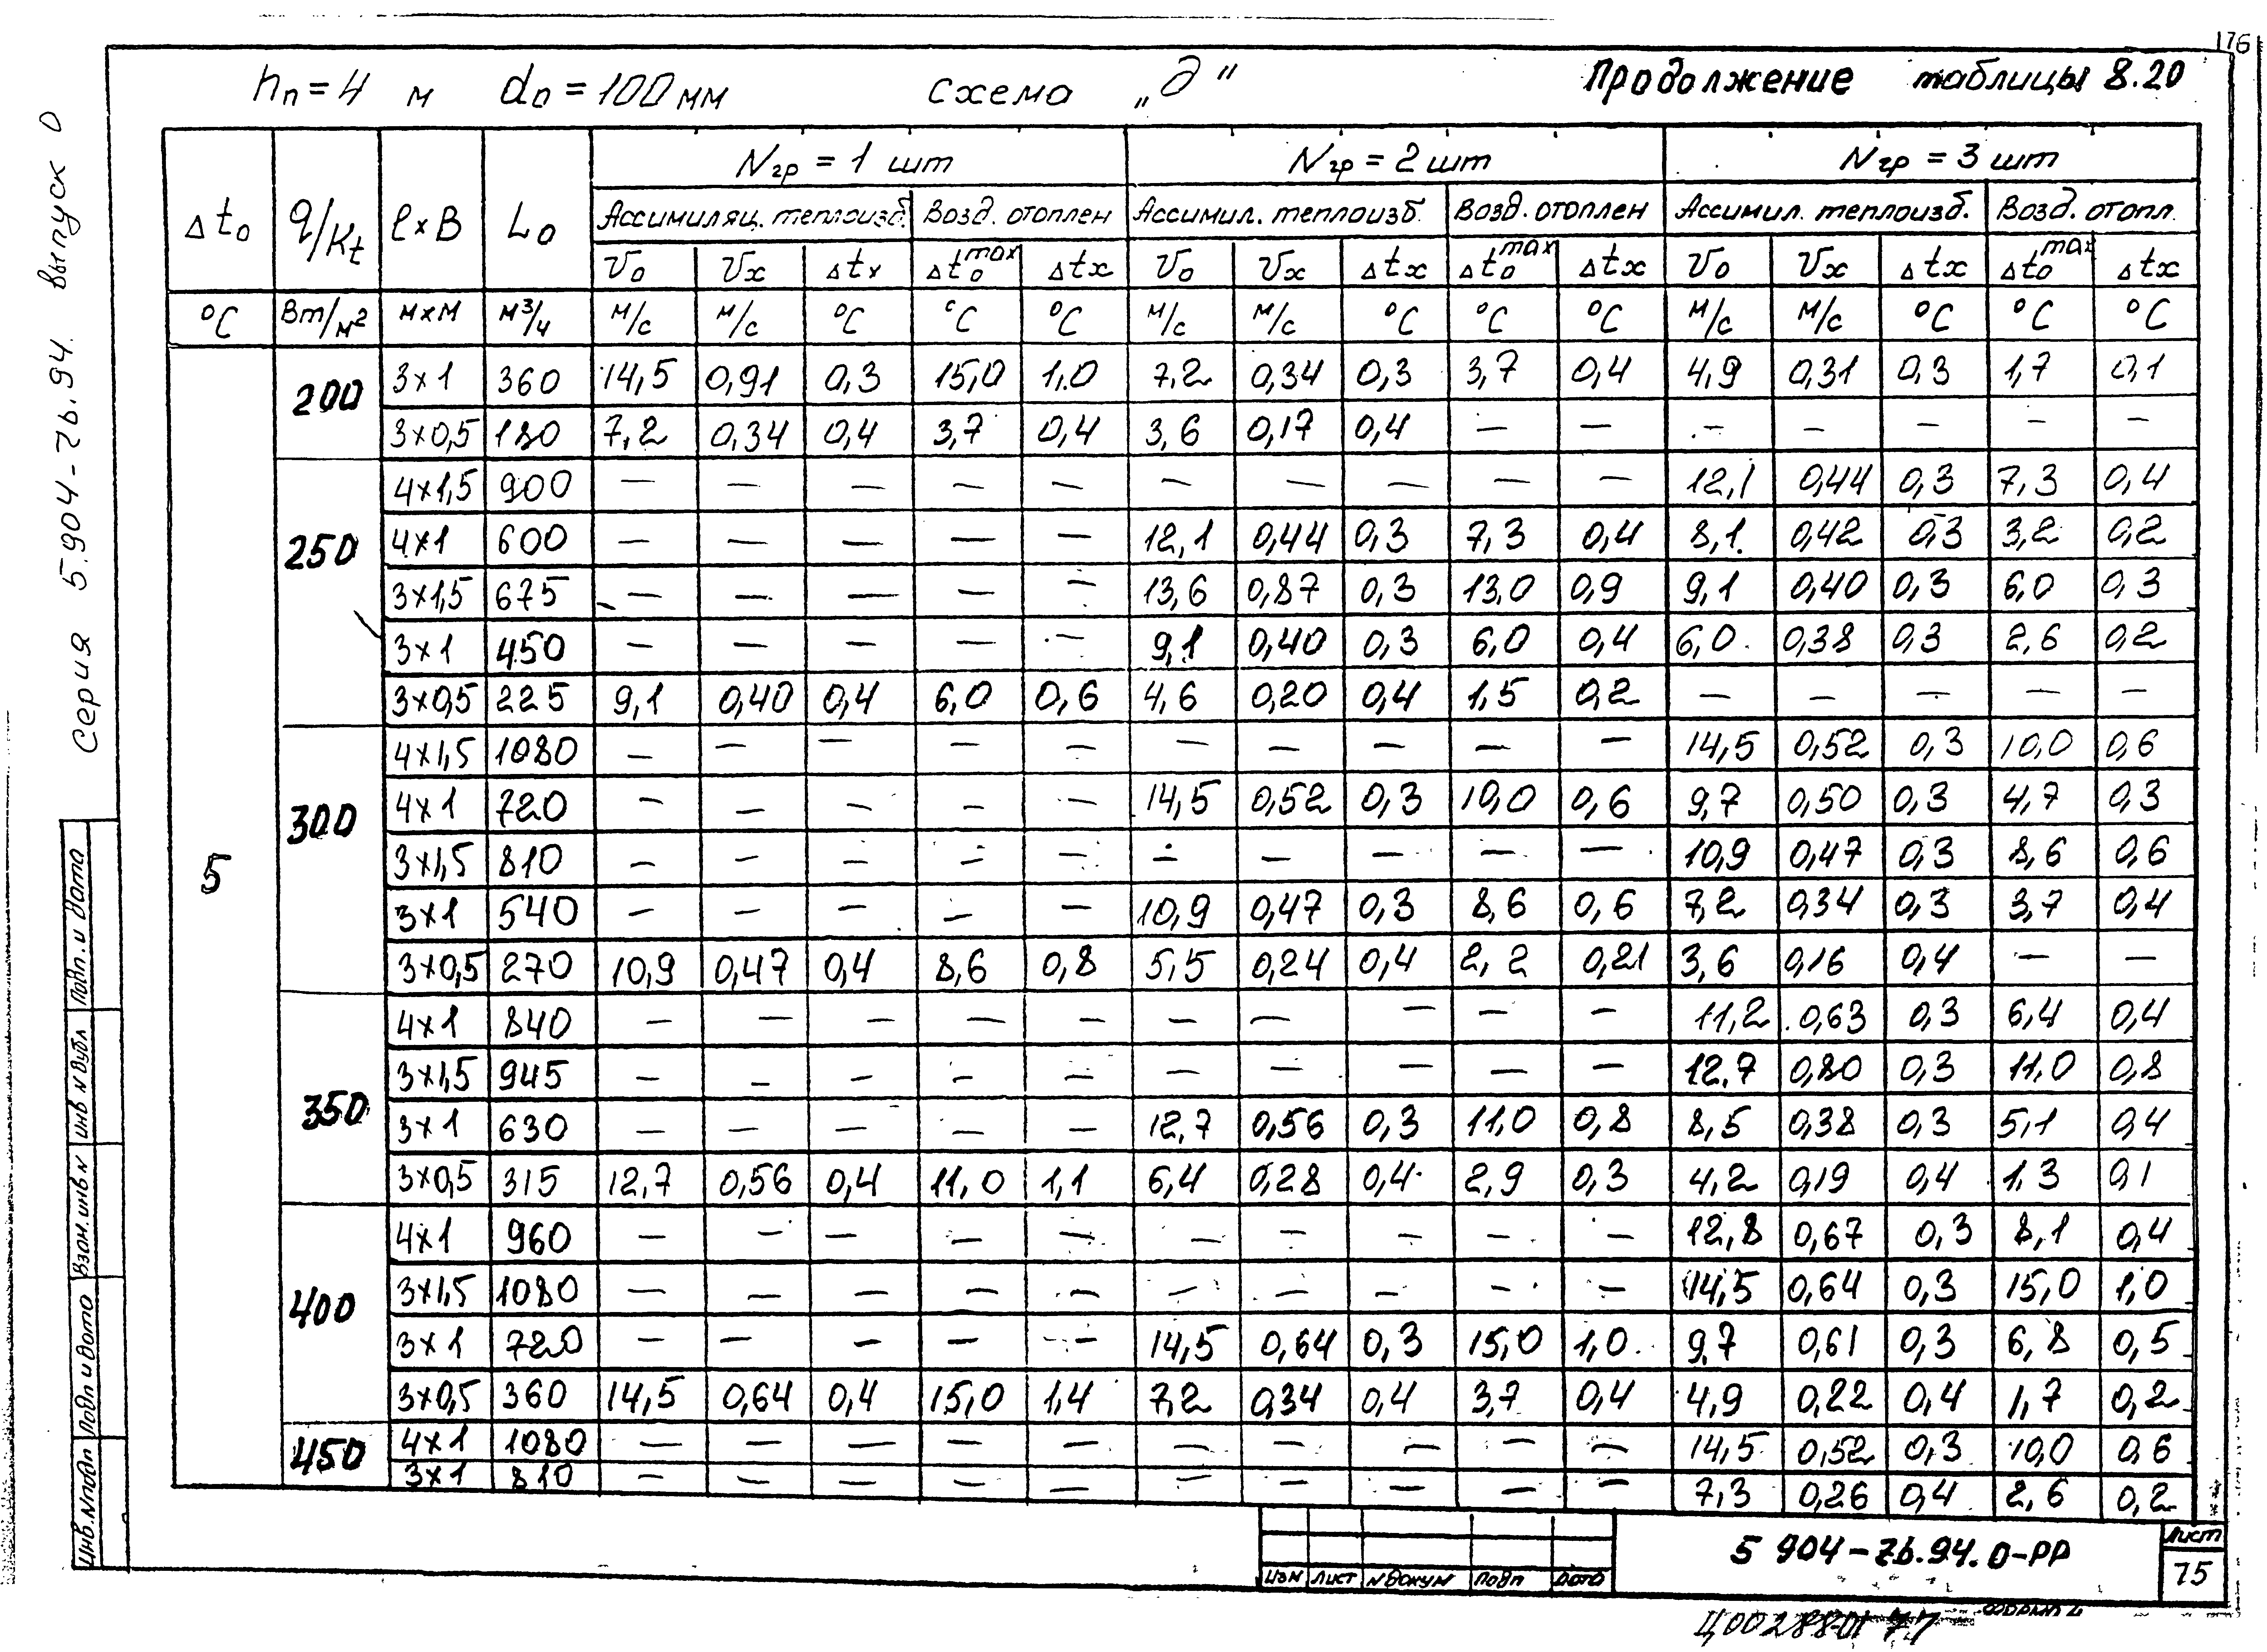 176
hп = 4 м d₀ = 100 мм схема „д" Продолжение таблицы 8.20
Δt₀ q/Kt ℓ×B L₀ Nгр = 1 шт Nгр = 2 шт Nгр = 3 шт
Ассимиляц. теплоизб. Возд. отоплен Ассимил. теплоизб. Возд. отоплен Ассимил. теплоизб. Возд. отопл.
V₀ Vx Δtx Δt₀max Δtx V₀ Vx Δtx Δt₀max Δtx V₀ Vx Δtx Δt₀max Δtx
°C Вт/м² м×м м³/ч м/с м/с °C °C °C м/с м/с °C °C °C м/с м/с °C °C °C
5
200
3×1 360 14,5 0,91 0,3 15,0 1,0 7,2 0,34 0,3 3,7 0,4 4,9 0,31 0,3 1,7 0,1
3×0,5 180 7,2 0,34 0,4 3,7 0,4 3,6 0,17 0,4 — — — — — — —
250
4×1,5 900 — — — — — — — — — — 12,1 0,44 0,3 7,3 0,4
4×1 600 — — — — — 12,1 0,44 0,3 7,3 0,4 8,1 0,42 0,3 3,2 0,2
3×1,5 675 — — — — — 13,6 0,87 0,3 13,0 0,9 9,1 0,40 0,3 6,0 0,3
3×1 450 — — — — — 9,1 0,40 0,3 6,0 0,4 6,0 0,38 0,3 2,6 0,2
3×0,5 225 9,1 0,40 0,4 6,0 0,6 4,6 0,20 0,4 1,5 0,2 — — — — —
300
4×1,5 1080 — — — — — — — — — — 14,5 0,52 0,3 10,0 0,6
4×1 720 — — — — — 14,5 0,52 0,3 10,0 0,6 9,7 0,50 0,3 4,7 0,3
3×1,5 810 — — — — — — — — — — 10,9 0,47 0,3 8,6 0,6
3×1 540 — — — — — 10,9 0,47 0,3 8,6 0,6 7,2 0,34 0,3 3,7 0,4
3×0,5 270 10,9 0,47 0,4 8,6 0,8 5,5 0,24 0,4 2,2 0,21 3,6 0,16 0,4 — —
350
4×1 840 — — — — — — — — — — 11,2 0,63 0,3 6,4 0,4
3×1,5 945 — — — — — — — — — — 12,7 0,80 0,3 11,0 0,8
3×1 630 — — — — — 12,7 0,56 0,3 11,0 0,8 8,5 0,38 0,3 5,1 0,4
3×0,5 315 12,7 0,56 0,4 11,0 1,1 6,4 0,28 0,4 2,9 0,3 4,2 0,19 0,4 1,3 0,1
400
4×1 960 — — — — — — — — — — 12,8 0,67 0,3 8,1 0,4
3×1,5 1080 — — — — — — — — — — 14,5 0,64 0,3 15,0 1,0
3×1 720 — — — — — 14,5 0,64 0,3 15,0 1,0 9,7 0,61 0,3 6,8 0,5
3×0,5 360 14,5 0,64 0,4 15,0 1,4 7,2 0,34 0,4 3,7 0,4 4,9 0,22 0,4 1,7 0,2
450
4×1 1080 — — — — — — — — — — 14,5 0,52 0,3 10,0 0,6
3×1 810 — — — — — — — — — — 7,3 0,26 0,4 2,6 0,2
Серия 5.904-7б.94. выпуск 0
Подп. и дата
Инв N дубл
Взам. инв N
Подп и дата
Инв. N подп
Изм Лист N докум Подп Дата
5 904-7б.94.0-РР
Лист
75
Ц00288-01 77
Формат